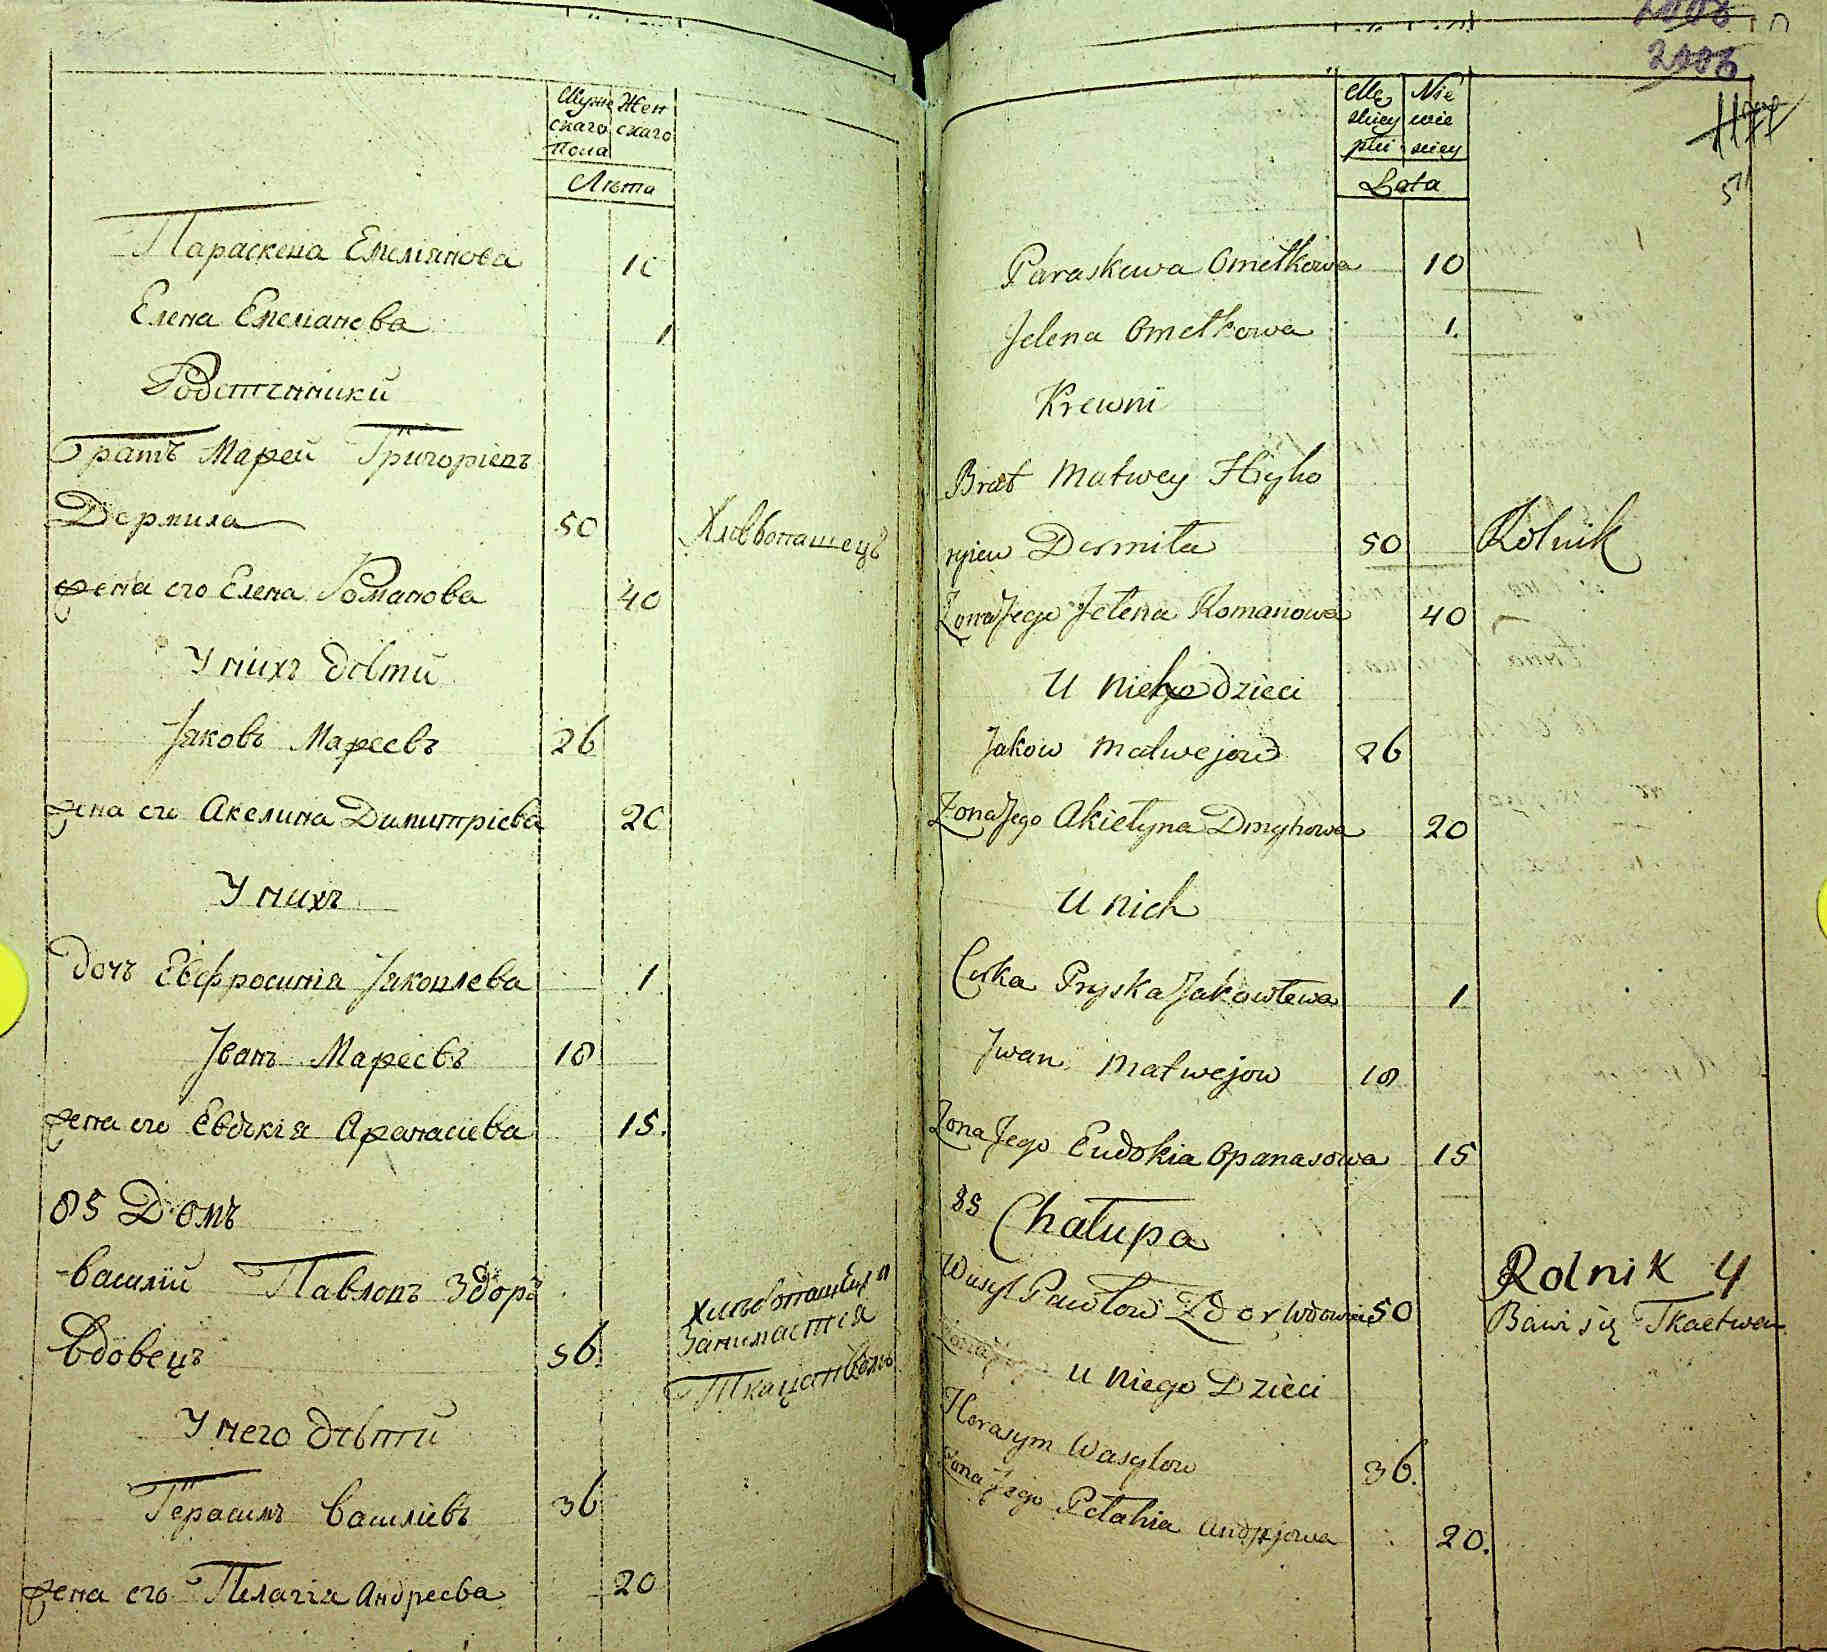 Муж Жен
скаго скаго
Пола
Лѣта
Параскева Емелянова 10
Елена Емелянова 1
Родственники
Братъ Марей Григоріевъ
Дормила 50 Хлѣбопашецъ
жена его Елена Романова 40
У нихъ дѣти
Яковъ Марѳеевъ 26
жена его Акелина Димитріева 20
У нихъ
Дочь Евфросинія Яковлева 1
Іванъ Марѳеевъ 18
жена его Евдокія Афанасіева 15.
85 Домъ
Василій Павловъ Здоръ
Вдовецъ 56. Хлѣбопашецъ и
Занимается
Ткацтвомъ
У него дѣти
Герасимъ Василіевъ 36
жена его Пелагія Андреева 20
2006
5
Mę Nie
skiey wie
płci sciey
Lata
Paraskewa Omelkowa 10
Jelena Omelkowa 1.
Krewni
Brat Matwey Hryho
ryiew Dermiła 50 Rolnik
Żona Jego Jelena Romanowa 40
U nich dzieci
Jakow Matwejow 26
Żona Jego Akielyna Dmyhowa 20
U nich
Curka Pryska Jakowlewa 1
Jwan Matwejow 18
Żona Jego Eudokia Opanasowa 15
85 Chałupa
Wasyl Pawlow Zdor Wdowiec 50 Rolnik y
Bawi się Tkactwem
U Niego Dzieci
Herasym Wasylow 36.
Żona Jego Pelahia Andrejowa 20.